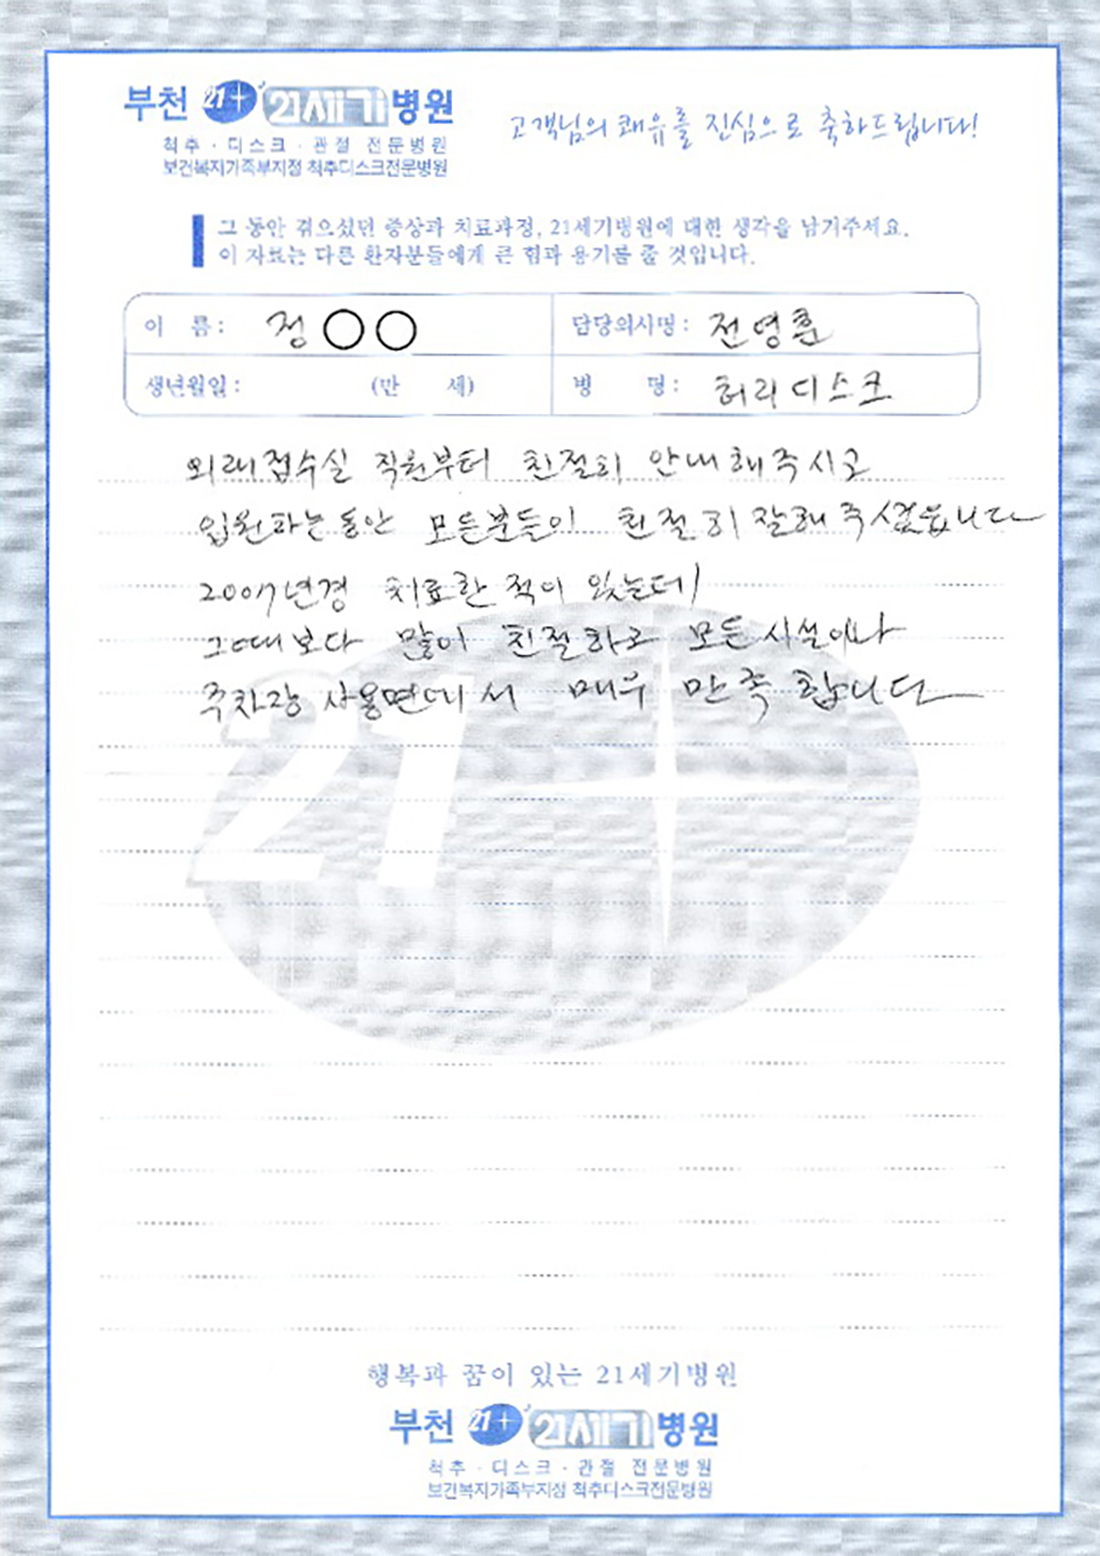 부천 21+ 21세기병원
척추 · 디스크 · 관절 전문병원
보건복지가족부지정 척추디스크전문병원
고객님의 쾌유를 진심으로 축하드립니다!
그 동안 겪으셨던 증상과 치료과정, 21세기병원에 대한 생각을 남기주세요.
이 자료는 다른 환자분들에게 큰 힘과 용기를 줄 것입니다.
이 름 : 정○○
담당의사명 : 전영훈
생년월일 : (만 세)
병 명 : 허리디스크
외래접수실 직원부터 친절히 안내해주시고
입원하는동안 모든분들이 친절히 잘해주셨읍니다
2007년경 치료한 적이 있는데
그때보다 많이 친절하고 모든시설이나
주차장 사용면에서 매우 만족합니다
21
행복과 꿈이 있는 21세기병원
부천 21+ 21세기병원
척추 · 디스크 · 관절 전문병원
보건복지가족부지정 척추디스크전문병원